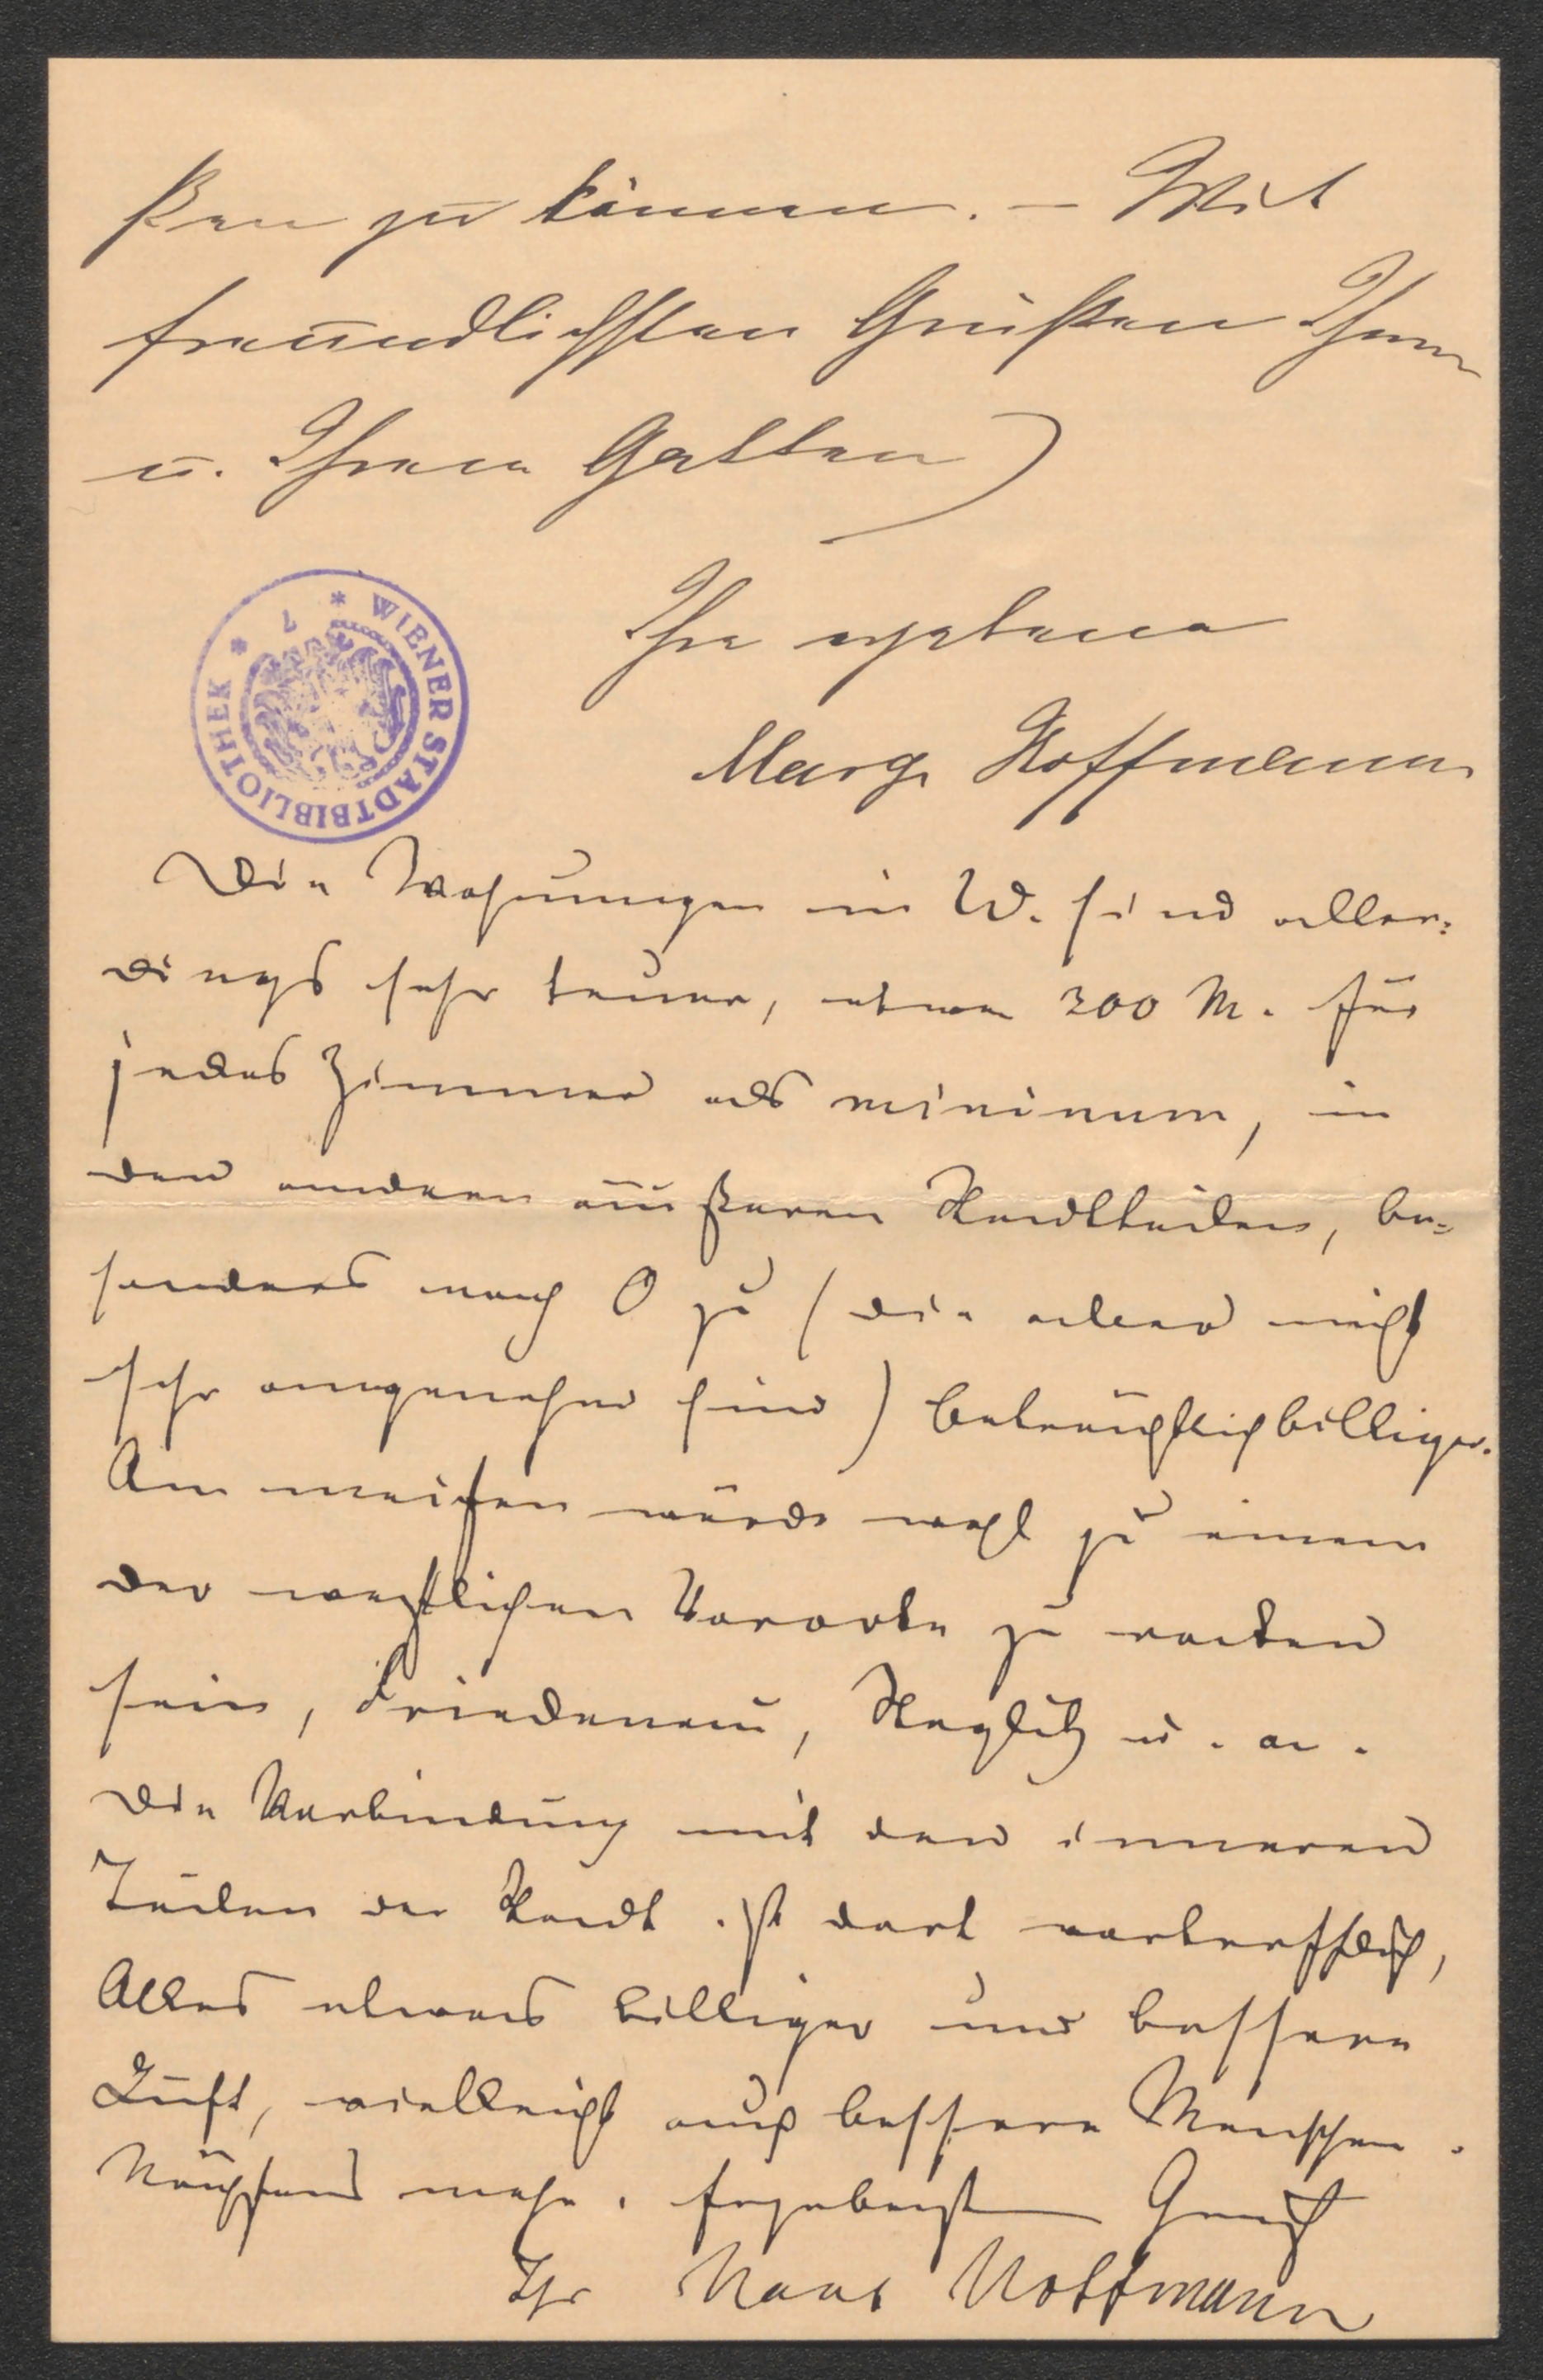 ßen zu können. – Mit
freundlichsten Grüßen Ihnen
u. Ihrem Gatten
Ihre ergebene
Marg. Hoffmann
WIENER STADTBIBLIOTHEK
Die Wohnungen im W. sind aller-
dings sehr teuer, etwa 300 M. für
jedes Zimmer als minimum, in
den anderen äußeren Stadtteilen, be-
sonders nach O zu (die aber nicht
sehr angenehm sind) beträchtlich billiger.
Am meisten würde wohl zu einem
der westlichen Vororte zu raten
sein, Friedenau, Steglitz u. a.
Die Verbindung mit den inneren
Teilen der Stadt ist dort vortrefflich,
Alles etwas billiger und bessere
Luft, vielleicht auch bessere Menschen.
Nächstens mehr. Ergebensten Gruß
Ihr Hans Hoffmann